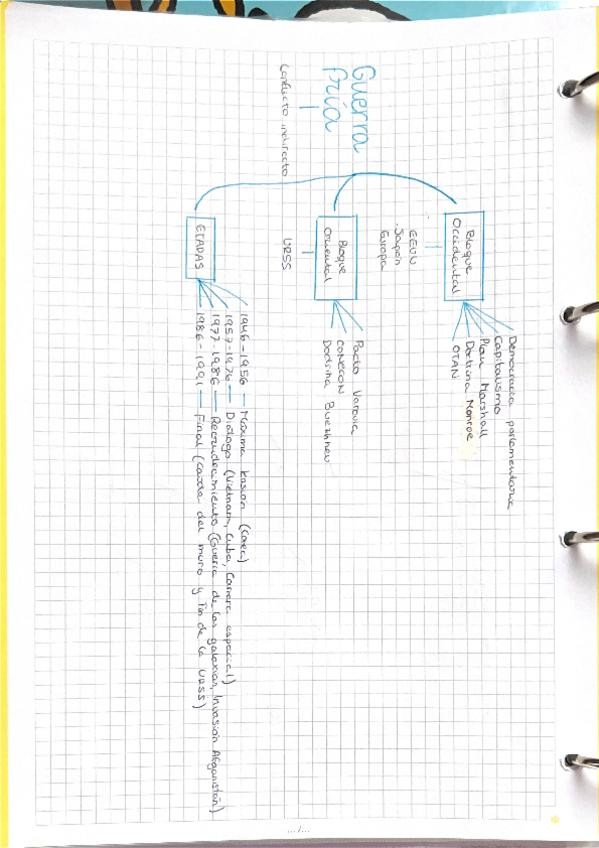 Guerra
Fría
Conflicto indirecto
Bloque
Occidental
EEUU
Japón
Europa
Democracia parlamentaria
Capitalismo
Plan Marshall
Doctrina Monroe
OTAN
Bloque
Oriental
URSS
Pacto Varsovia
COMECON
Doctrina Brezhnev
ETAPAS
1946-1956 — Máxima tensión (Corea)
1957-1976 — Diálogo (Vietnam, Cuba, Carrera espacial)
1977-1986 — Recrudecimiento (Guerra de las galaxias, Invasión Afganistán)
1986-1991 — Final (caída del muro y fin de la URSS)
.../...